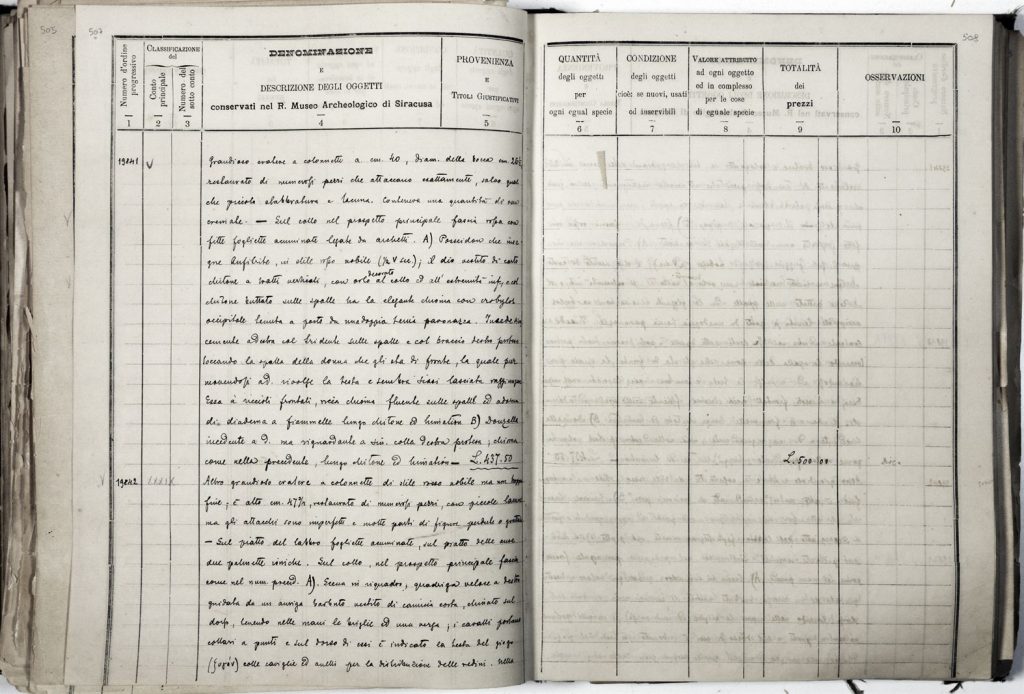 505
507
Numero d'ordine progressivo
CLASSIFICAZIONE del
Conto principale
Numero del sotto conto
DENOMINAZIONE
E
DESCRIZIONE DEGLI OGGETTI
conservati nel R. Museo Archeologico di Siracusa
PROVENIENZA
E
TITOLI GIUSTIFICATIVI
1 2 3 4 5
19841
Grandioso cratere a colonnette a. cm. 40, diam. della bocca cm.
restaurato di numerosi pezzi che attaccano esattamente, salvo qual
che piccola slabbratura e lacuna. Conteneva una quantità di
cremate. — Sul collo nel prospetto principale fascia rossa con
fitte fogliette acuminate legate da archetti. A) Poseidon che inse
gue Anfitrite, in stile rosso nobile (½ V sec.); il dio vestito di corto
chitone a tratti verticali, con orlo decorato al collo ed all'estremità inf., e col
chitone buttato sulle spalle ha la elegante chioma con crobylos
occipitale tenuta a posto da una doppia tenia paonazza. Incede
cemente col tridente sulle spalle e col braccio destro proteso
toccando la spalla della donna che gli sta di fronte, la quale pur
movendosi a d. rivolge la testa e sembra siasi lasciata raggiungere
Essa à riccioli frontali, chioma fluente sulle spalle ed adorna
di diadema a fiammelle lungo chitone ed himation B) Donzella
incedente a d. ma riguardante a sin. colla destra protesa, chioma
come nella precedente, lungo chitone ed himation — L. 437.50
19842
Altro grandioso cratere a colonnette di stile rosso nobile ma non troppo
fine; è alto cm. 47½, restaurato di numerosi pezzi, con piccole lacune
ma gli attacchi sono imperfetti e molte parti di figure perdute o guaste
— Sul piatto del labbro fogliette acuminate, sul piatto delle anse
due palmette ioniche. Sul collo, nel prospetto principale fascia
come nel num. preced. A). Scena in riquadro; quadriga veloce a destra
guidata da un auriga barbato vestito di camicia corta, chinato sul
dorso, tenendo nelle mani le briglie ed una verga; i cavalli portano
collari a punti e sul dorso di essi è indicato la testa del giogo
(ζυγόν) colle caviglie ed anelli per la distribuzione delle redini. Nella
508
QUANTITÀ
degli oggetti
per
ogni egual specie
CONDIZIONE
degli oggetti
cioè: se nuovi, usati
od inservibili
VALORE ATTRIBUITO
ad ogni oggetto
ed in complesso
per le cose
di eguale specie
TOTALITÀ
dei
prezzi
OSSERVAZIONI
6 7 8 9 10
L. 500 00